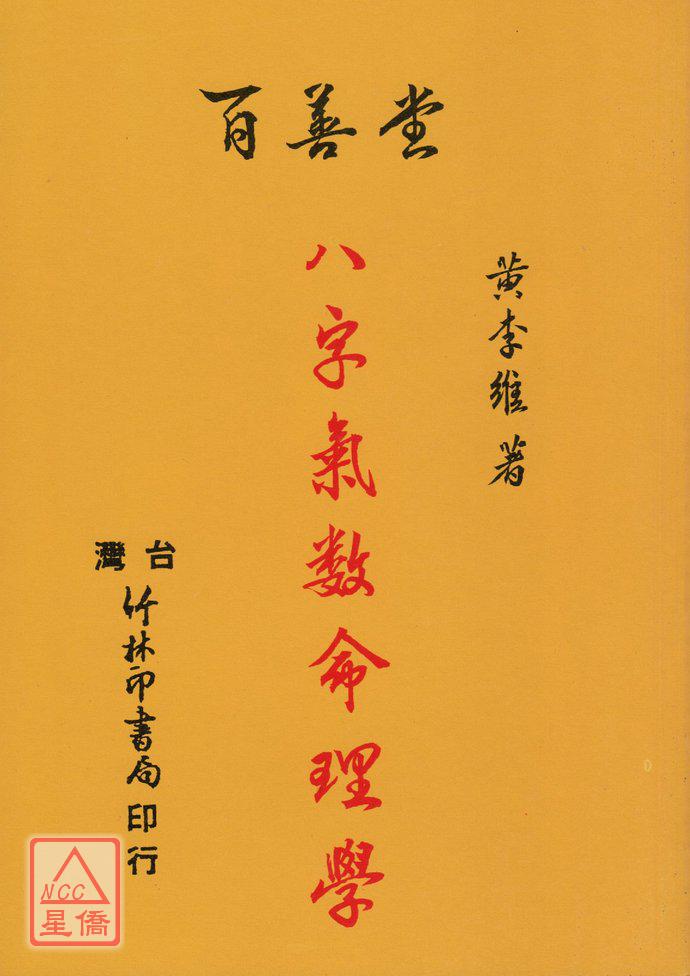 百善堂
黃李維著
八字氣数命理學
台灣
竹林印書局印行
NCC
星僑